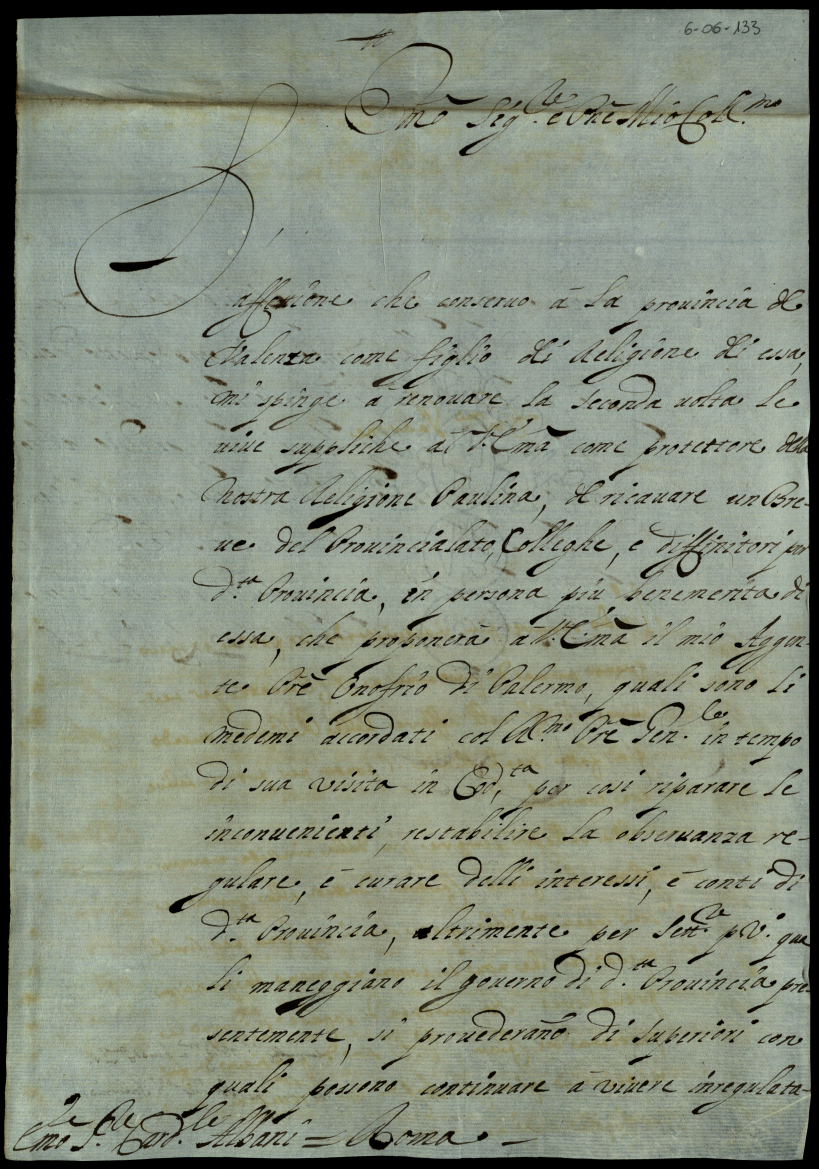 6-06-133
Emo Sig.re e Pre Mio Coll.mo
L'
affezione che conseruo à la prouincia de
Valenza come figlio di Religione di essa,
mi spinge à renouare la seconda uolta le
uiue suppliche à V. Emā come protettore della
nostra Religione Paulina, de ricauare un Bre-
ue del Prouincialato, Colleghe, e diffinitori per
d.ta Prouincia, in persona più benemerita di
essa, che proponerà à V. Emā il mio Aggen-
te Prē Onofrio di Palermo, quali sono li
medemi accordati col R.mo Prē Gen.le in tempo
di sua visita in d.ta per cosi riparare le
inconuenienti, restabilire la obseruanza re-
gulare, è curare delli interessi, è conti di
d.ta Prouincia, altrimente per Sett.re p.V. qua
li maneggiano il gouerno di d.ta Prouincia pre-
sentemente, si prouederanō di superiori con
quali possono continuare à viuere inregulata-
Emo S.r Card.le Albani = Roma -